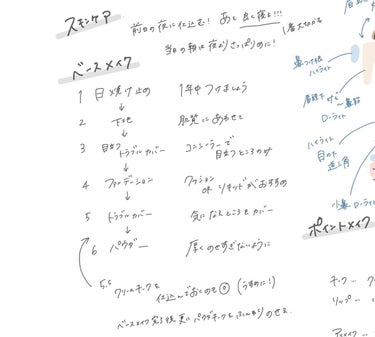 スキンケア
前日の夜に仕込む! あと 良く寝ろ!!!
1番大切かも
当日の朝は夜よりさっぱりめに!
ベースメイク
1 日焼け止め 1年中つけましょう
↓
2 下地 肌質にあわせて
↓
3 目立つトラブルカバー コンシーラーで目立つところのみ
↓
4 ファンデーション クッション or リキッドがおすすめ
↓
5 トラブルカバー 気になるところをカバー
↓
6 パウダー 厚くのせすぎないように
5.5 クリームチークを仕込んでおくのも◎ (うすめに!)
ベースメイク完了後、更にパウダーチークをふんわりのせる。
鼻つけ根
ハイライト
眉頭下げる〜鼻筋
ローライト
ハイライト
目の下
逆三角
小鼻 ローライト
ポイントメイク
チーク…
リップ…
アイメイク…